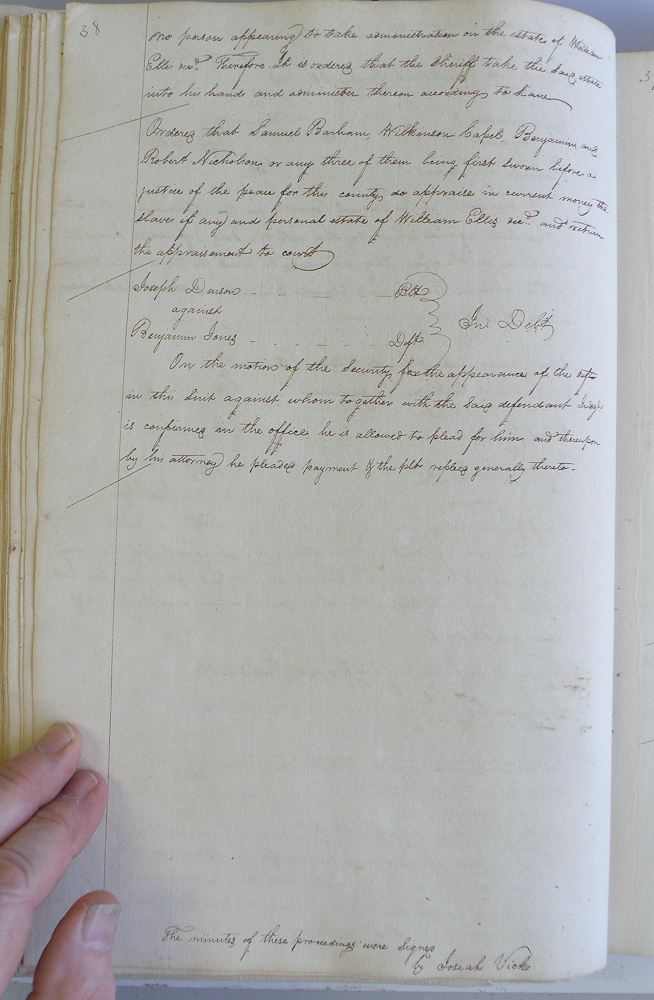 38
no person appearing to take administration on the estate of William
Ellis decd. Therefore. It is ordered that the Sheriff take the said estate
into his hands and administer thereon according to Law
Ordered that Samuel Barham, Wilkinson Capel, Benjamin and
Robert Nicholson or any three of them being first sworn before a
justice of the peace for this county do appraise in current money the
slaves if any and personal estate of William Ellis decd. and return
the appraisement to court
Joseph Denson - - - - Plt
against
Benjamin Jones - - - - - Deft
In Debt
On the motion of the Security for the appearance of the
in this Suit against whom together with the said defendant Judgt
is confirmed in the office he is allowed to plead for him and thereupon
by his attorney he pleaded payment & the plt replied generally thereto -
The minutes of these proceedings were Signed
by Josiah Vick